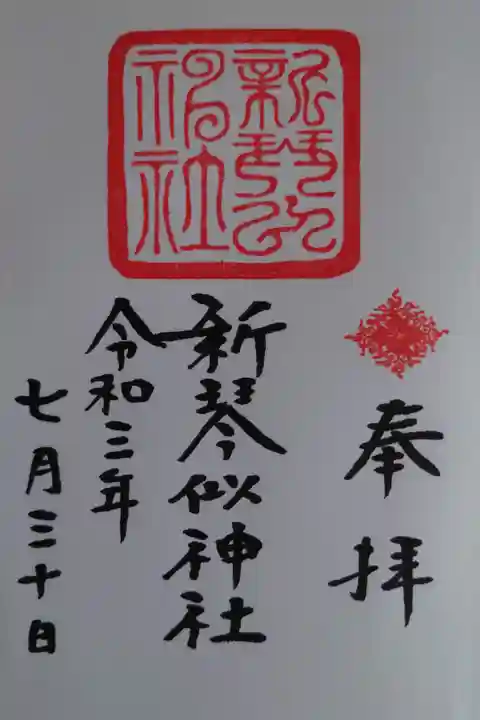 奉拝
新琴似神社
新琴似神社
令和三年
七月三十日